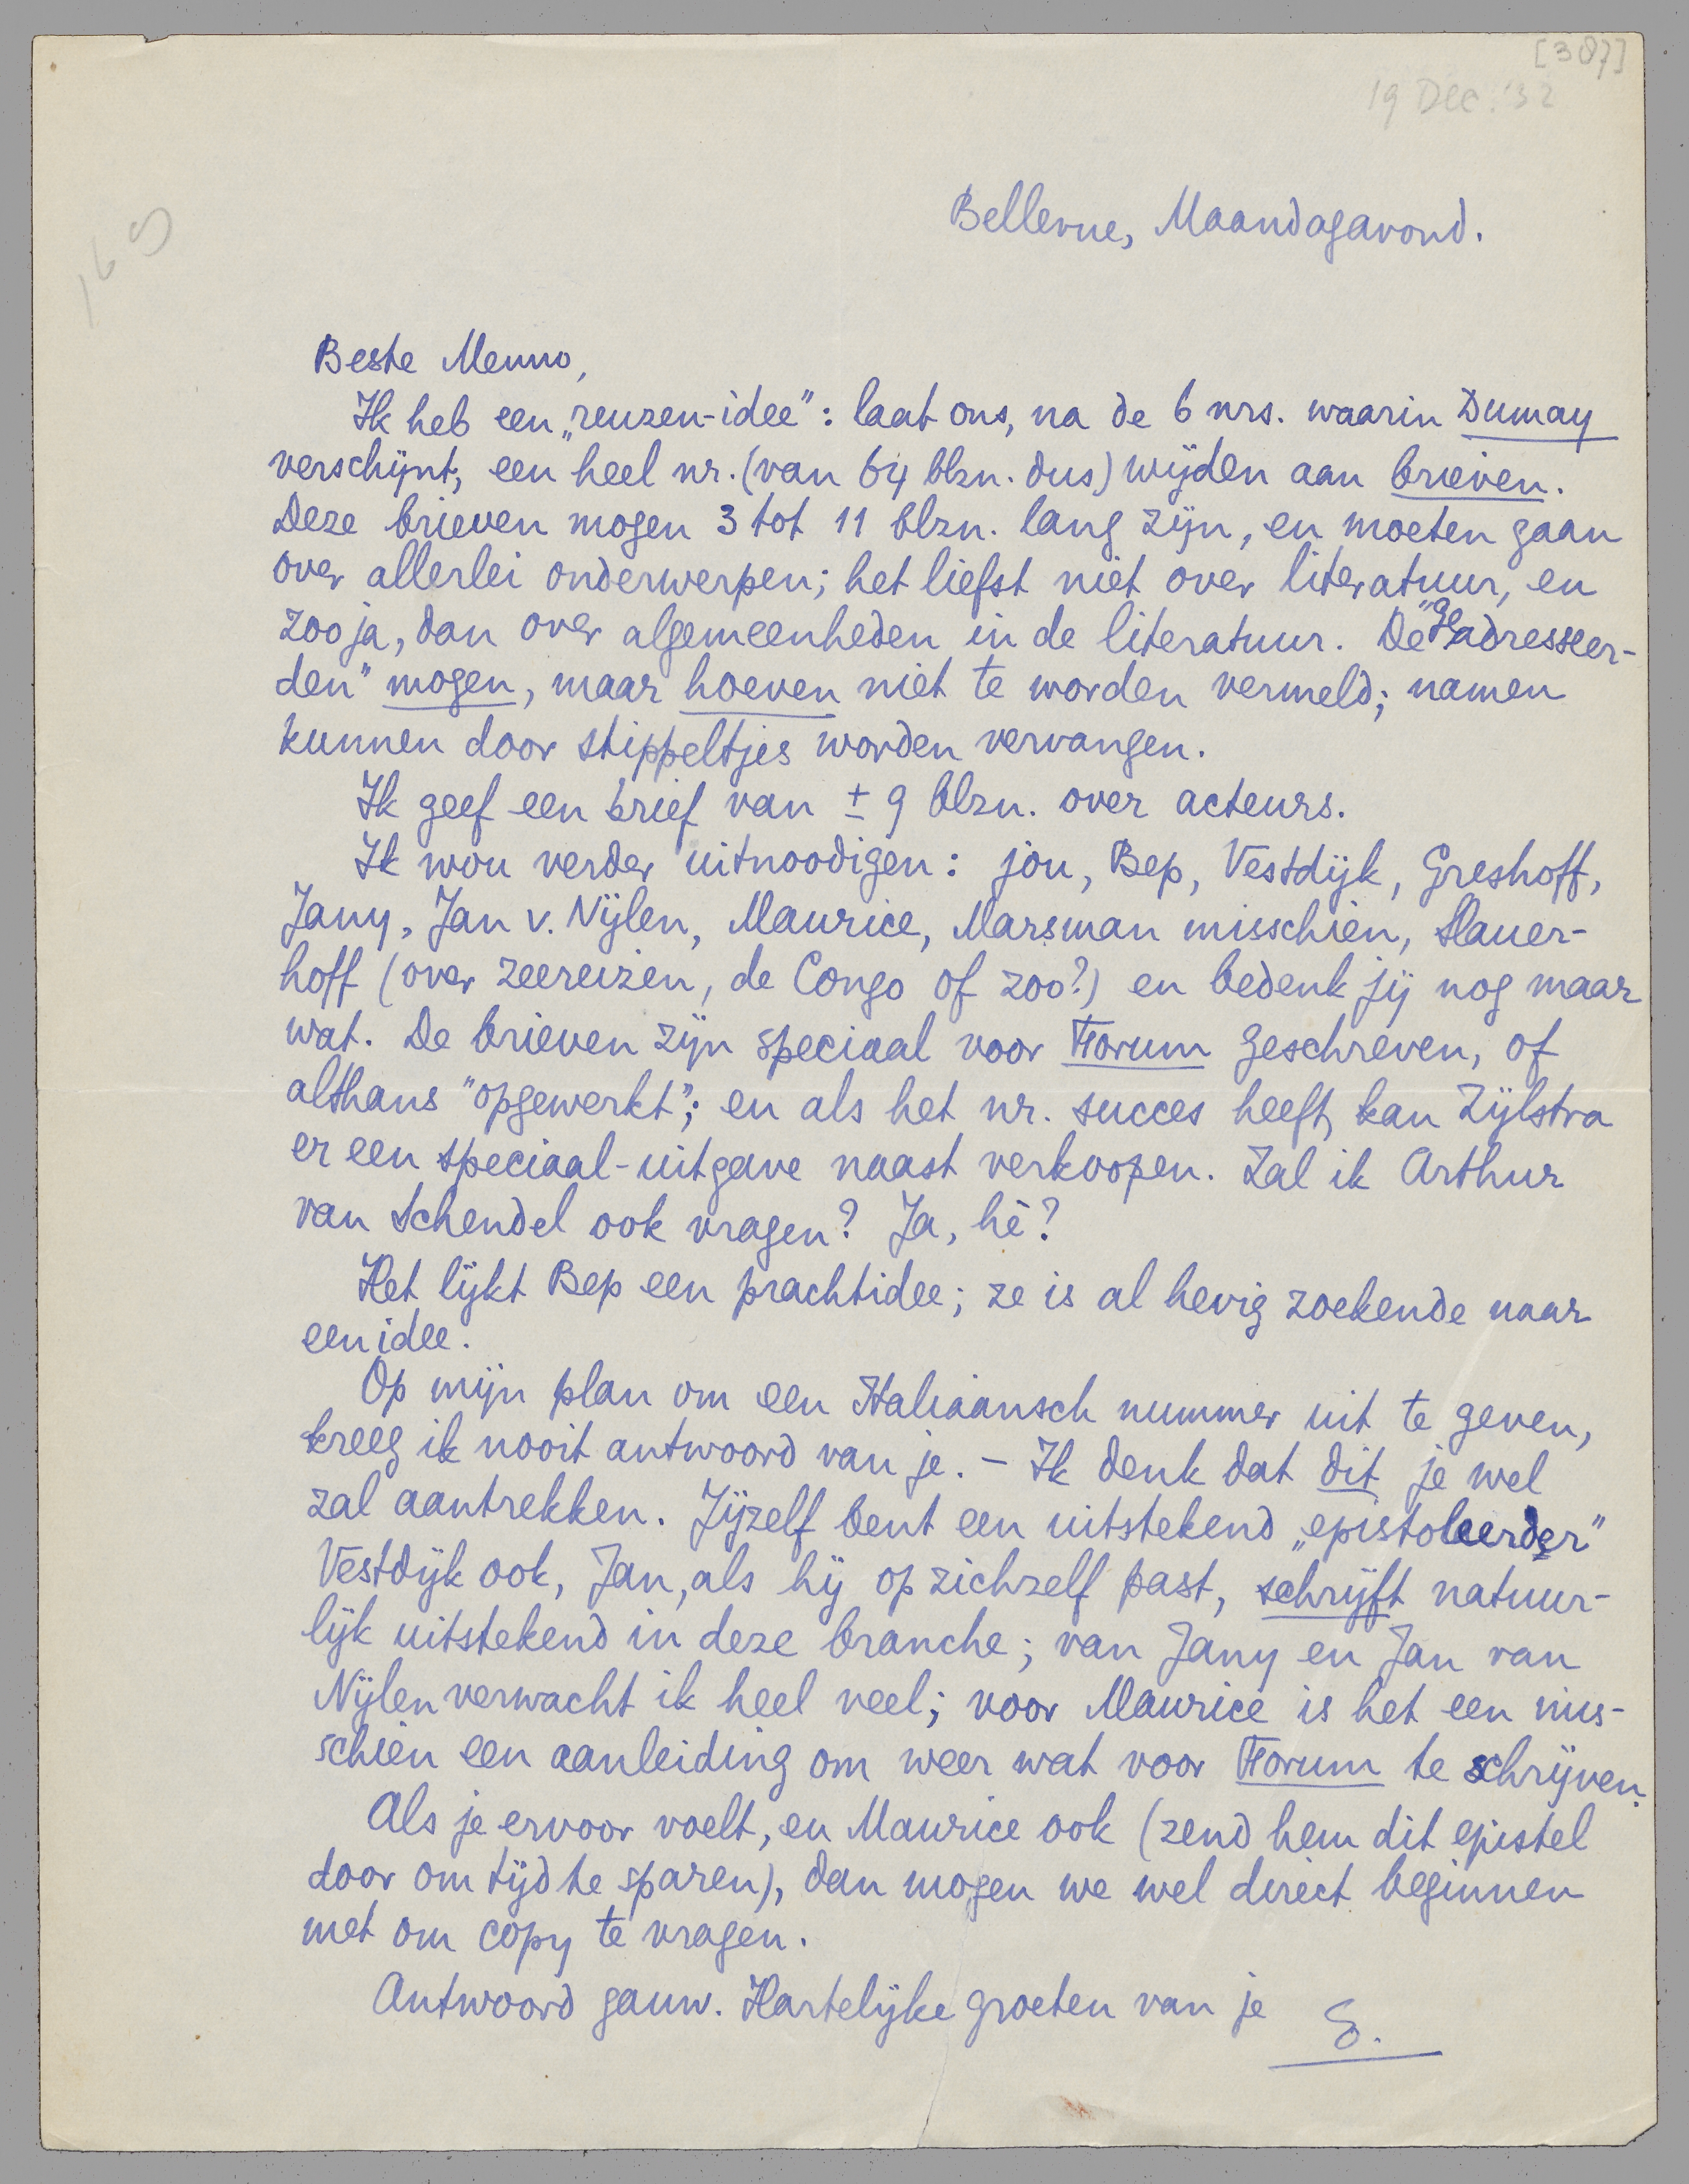 [387]
19 Dec. '32
169
Bellevue, Maandagavond.
Beste Menno,
Ik heb een „reuzen-idee”: laat ons, na de 6 nrs. waarin Dumay
verschijnt, een heel nr. (van 64 blzn. dus) wijden aan brieven.
Deze brieven mogen 3 tot 11 blzn. lang zijn, en moeten gaan
over allerlei onderwerpen; het liefst niet over literatuur, en
zoo ja, dan over algemeenheden in de literatuur. De "geadresseer-
den" mogen, maar hoeven niet te worden vermeld; namen
kunnen door stippeltjes worden vervangen.
Ik geef een brief van ± 9 blzn. over acteurs.
Ik wou verder uitnoodigen: jou, Bep, Vestdijk, Greshoff,
Jany, Jan v. Nijlen, Maurice, Marsman misschien, Slauer-
hoff (over zeereizen, de Congo of zoo?) en bedenk jij nog maar
wat. De brieven zijn speciaal voor Forum geschreven, of
althans "opgewerkt"; en als het nr. succes heeft, kan Zijlstra
er een speciaal-uitgave naast verkoopen. Zal ik Arthur
van Schendel ook vragen? Ja, hè?
Het lijkt Bep een prachtidee; ze is al hevig zoekende naar
een idee.
Op mijn plan om een Italiaansch nummer uit te geven,
kreeg ik nooit antwoord van je. – Ik denk dat dit je wel
zal aantrekken. Jijzelf bent een uitstekend „epistoleerder”
Vestdijk ook, Jan, als hij op zichzelf past, schrijft natuur-
lijk uitstekend in deze branche; van Jany en Jan van
Nijlen verwacht ik heel veel; voor Maurice is het een mis-
schien een aanleiding om weer wat voor Forum te schrijven.
Als je ervoor voelt, en Maurice ook (zend hem dit epistel
door om tijd te sparen), dan mogen we wel direct beginnen
met om copy te vragen.
Antwoord gauw. Hartelijke groeten van je
E.